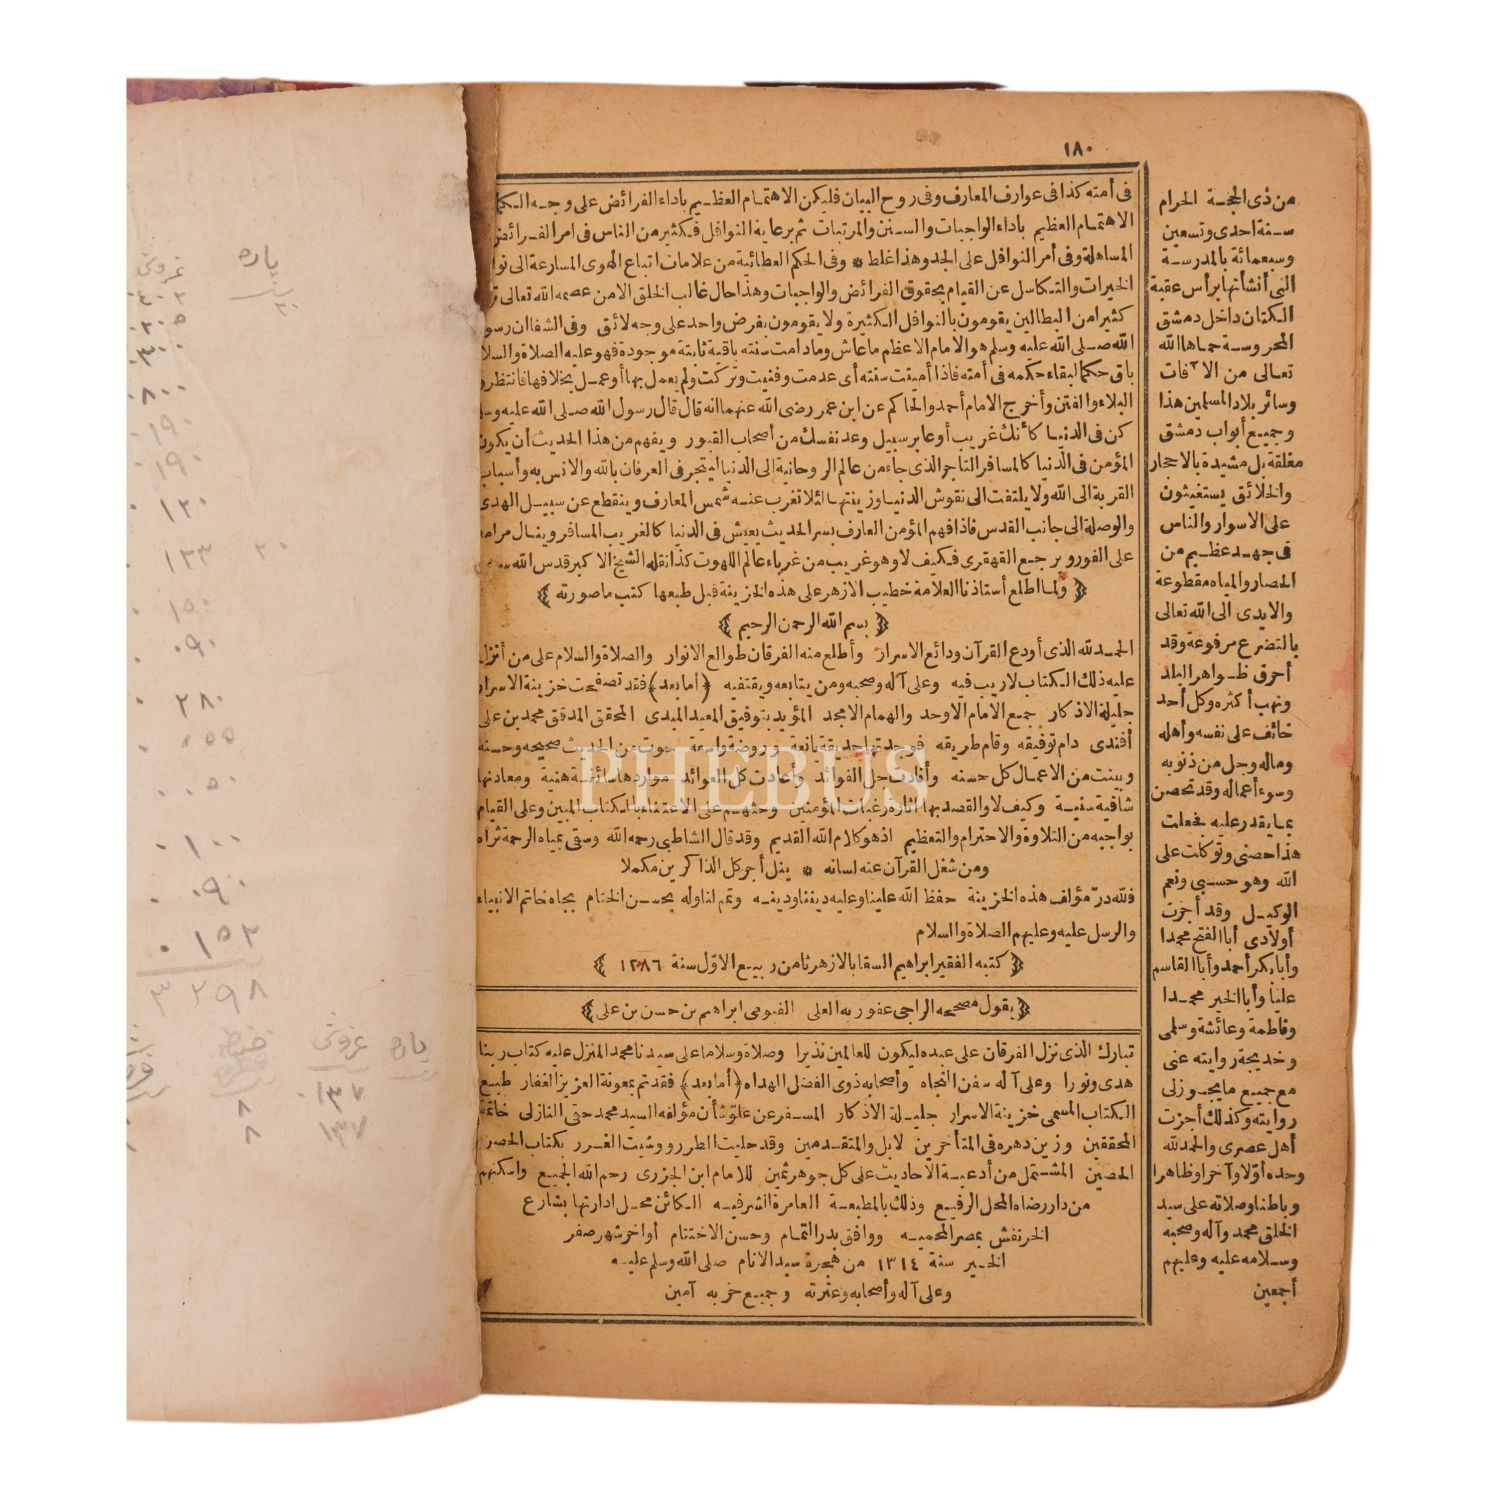 ١٨٠
فى أمته كذا فى عوارف المعارف وفى روح البيان فليكن الاهتمام العظيم باداء الفرائض على وجه الكمال
الاهتمام العظيم باداء الواجبات والسنن والمرتبات ثم برعاية النوافل فكثير من الناس فى امر الفرائض
المساهلة وفى أمر النوافل على الجد وهذا غلط * وفى الحكم العطائية من علامات اتباع الهوى المسارعة الى نوا
الخيرات والتكاسل عن القيام بحقوق الفرائض والواجبات وهذا حال غالب الخلق الا من عصمه الله تعالى
كثيرا من البطالين يقومون بالنوافل الكثيرة ولا يقومون بفرض واحد على وجه لائق وفى الشفا ان رسو
الله صلى الله عليه وسلم هو الامام الاعظم ما عاش وما دامت سنته باقية ثابتة موجودة فهو عليه الصلاة والسلا
باق حكما لبقاء حكمه فى أمته فاذا أميتت سنته أى عدمت وفنيت وتركت ولم يعمل بها أو عمل بخلافها فانتظرو
البلاء والفتن وأخرج الامام أحمد والحاكم عن ابن عمر رضى الله عنهما انه قال قال رسول الله صلى الله عليه وسلم
كن فى الدنيا كأنك غريب أو عابر سبيل وعد نفسك من أصحاب القبور ويفهم من هذا الحديث أن يكون
المؤمن فى الدنيا كالمسافر التاجر الذى جاء من عالم الروحانية الى الدنيا ليتجر فى العرفان بالله والانس به وأسباب
القربة الى الله ولا يلتفت الى نقوش الدنيا وزينتها لئلا تغرب عنه شمس المعارف وينقطع عن سبيل الهدى
والوصلة الى جانب القدس فاذا فهم المؤمن العارف بسر الحديث يعيش فى الدنيا كالغريب المسافر وينال مرامه
على الفور ويرجع القهقرى فكيف لا وهو غريب من غرباء عالم اللهوت كذا نقله الشيخ الاكبر قدس الله سره
﴿ ولما اطلع أستاذنا العلامة خطيب الازهر على هذه الخزينة قبل طبعها كتب ما صورته ﴾
﴿ بسم الله الرحمن الرحيم ﴾
الحمد لله الذى أودع القرآن ودائع الاسرار وأطلع منه الفرقان طوالع الانوار والصلاة والسلام على من أنزل
عليه ذلك الكتاب لا ريب فيه وعلى آله وصحبه ومن يتابعه ويقتفيه ﴿أما بعد﴾ فقد تصفحت خزينة الاسرار
جليلة الاذكار جمع الامام الاوحد والهمام الامجد المؤيد بتوفيق المعيد المبدى المحقق المدقق محمد بن على
أفندى دام توفيقه وقام طريقه فوجدتها حديقة يانعة وروضة واسعة حوت من الحديث صحيحه وحسنه
وبينت من الاعمال كل حسنه وأفادت جل الفوائد وأعادت كل العوائد مواردها سائغة هنية ومعادنها
شافية سنية وكيف لا والقصد بها اثارة رغبات المؤمنين وحثهم على الاعتناء بالكتاب المبين وعلى القيام
بواجبه من التلاوة والاحترام والتعظيم اذ هو كلام الله القديم وقد قال الشاطبى رحمه الله وسقى بمياه الرحمة ثراه
ومن شغل القرآن عنه لسانه * ينل أجر كل الذاكرين مكملا
فلله در مؤلف هذه الخزينة حفظ الله علينا وعليه ديننا ودينه وتمم لنا وله بحسن الختام بجاه خاتم الانبياء
والرسل عليه وعليهم الصلاة والسلام
﴿ كتبه الفقير ابراهيم السقا بالازهر ثامن ربيع الاول سنة ١٢٨٦ ﴾
﴿ يقول مصححه الراجى عفو ربه العلى الفيومى ابراهيم بن حسن بن على ﴾
تبارك الذى نزل الفرقان على عبده ليكون للعالمين نذيرا وصلاة وسلاما على سيدنا محمد المنزل عليه كتاب ربنا
هدى ونورا وعلى آله سفن النجاه وأصحابه ذوى الفضل الهداه ﴿أما بعد﴾ فقد تم بمعونة العزيز الغفار طبع
الكتاب المسمى خزينة الاسرار جليلة الاذكار المسفر عن علو شأن مؤلفه السيد محمد حقى النازلى خاتمة
المحققين وزين دهره فى المتأخرين لا بل والمتقدمين وقد حليت الطرر ووشيت الغرر بكتاب الحصن
الحصين المشتمل من أدعية الاحاديث على كل جوهر ثمين للامام ابن الجزرى رحم الله الجميع واسكنهم
من دار رضاه المحل الرفيع وذلك بالمطبعة العامرة الشرفيه الكائن محل ادارتها بشارع
الخرنفش بمصر المحميه ووافق بدر التمام وحسن الاختتام أواخر شهر صفر
الخير سنة ١٣١٤ من هجرة سيد الانام صلى الله وسلم عليه
وعلى آله وأصحابه وعترته وجميع حزبه آمين
من ذى الحجة الحرام
سنة احدى وتسعين
وسبعمائة بالمدرسة
التى أنشأتها برأس عقبة
الكتان داخل دمشق
المحروسة حماها الله
تعالى من الآفات
وسائر بلاد المسلمين هذا
وجميع أبواب دمشق
مغلقة بل مشيدة بالاحجار
والخلائق يستغيثون
على الاسوار والناس
فى جهد عظيم من
الحصار والمياه مقطوعة
والايدى الى الله تعالى
بالتضرع مرفوعة وقد
أحرق ظواهر البلد
ونهب أكثره وكل أحد
خائف على نفسه وأهله
وماله وجل من ذنوبه
وسوء أعماله وقد تحصن
بما يقدر عليه فجعلت
هذا حصنى وتوكلت على
الله وهو حسبى ونعم
الوكيل وقد أجزت
أولادى أبا الفتح محمدا
وأبا بكر أحمد وأبا القاسم
عليا وأبا الخير محمدا
وفاطمة وعائشة وسلمى
وخديجة روايته عنى
مع جميع ما يجوز لى
روايته وكذلك أجزت
أهل عصرى والحمد لله
وحده أولا وآخرا وظاهرا
وباطنا وصلاته على سيد
الخلق محمد وآله وصحبه
وسلامه عليه وعليهم
أجمعين
PHEBUS
پاره
غروش
٣٠
٨٠٠
١٩٠
١٩٠
١٢٠
٢٠ ١٢٣
١٥٠
٠٩٠
٢٨٠
٠٥٥
٠٥٠
١٠٠
٠٩٠
١٥٢
٣٢٩٨
پاره غروش
١٣٧
١٣٧
٨
٨